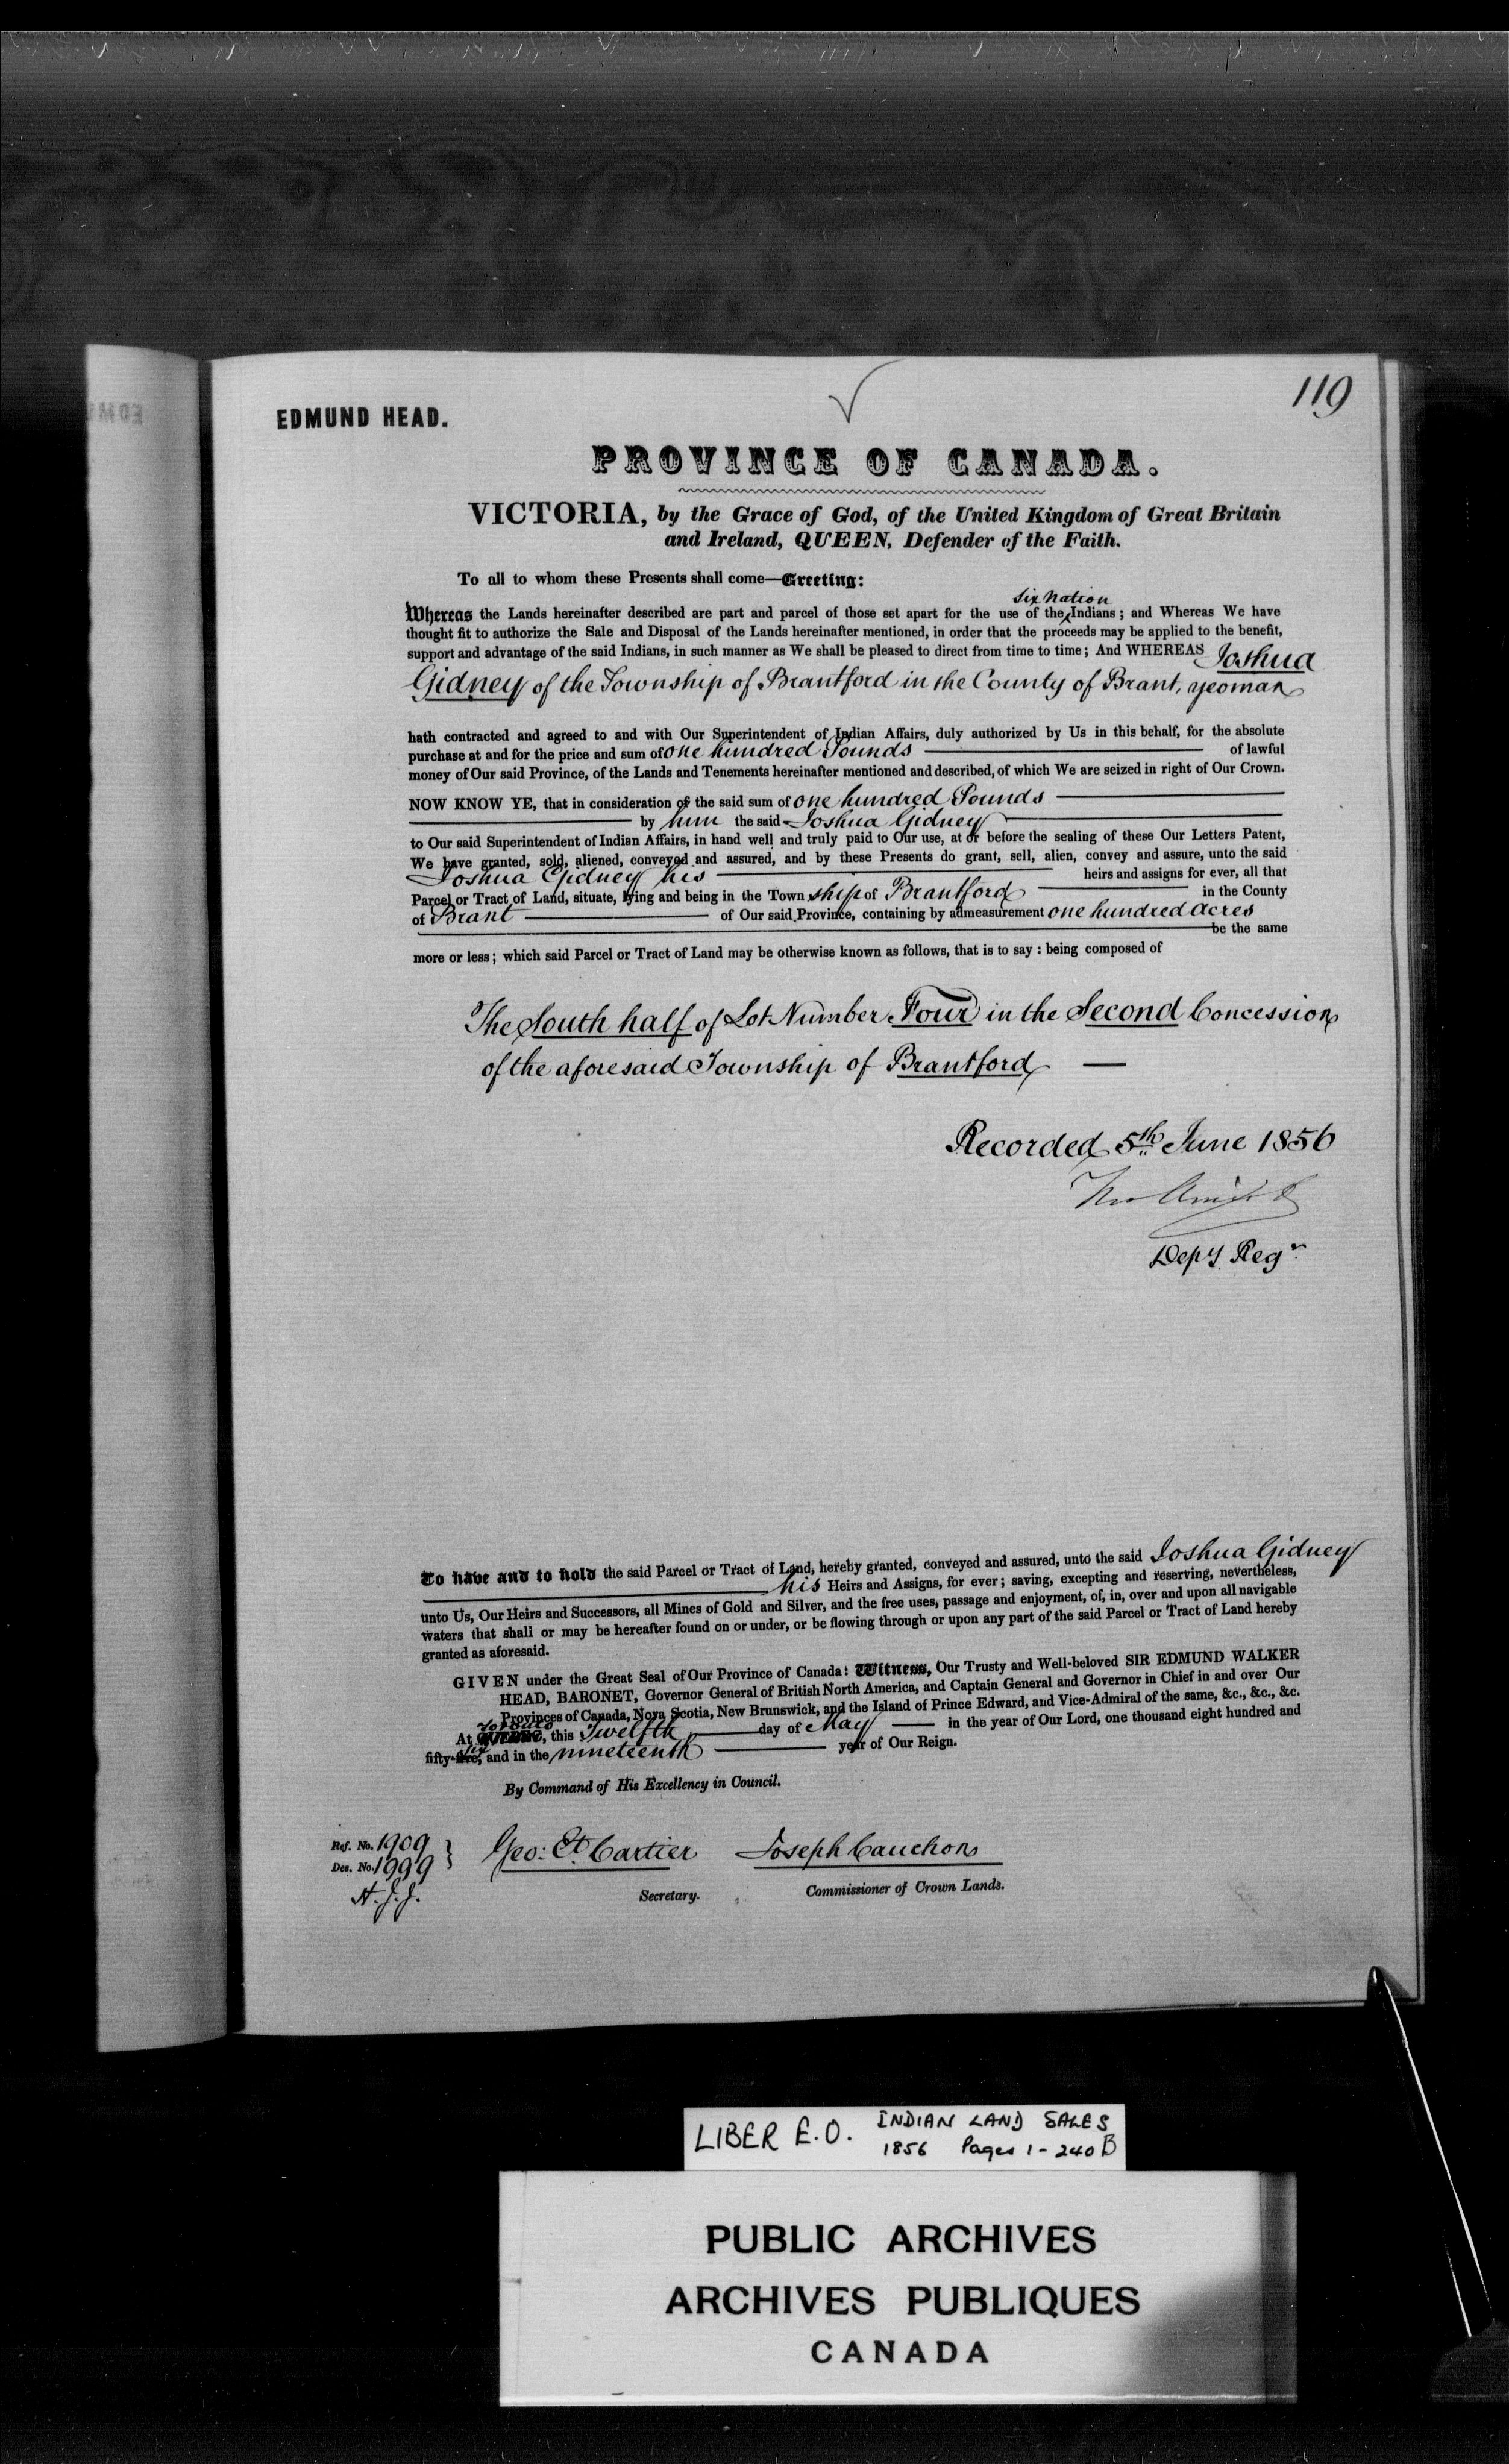 119
EDMUND HEAD.
PROVINCE OF CANADA.
VICTORIA, by the Grace of God, of the United Kingdom of Great Britain
and Ireland, QUEEN, Defender of the Faith.
To all to whom these Presents shall come—Greeting:
Six Nation
Whereas the Lands hereinafter described are part and parcel of those set apart for the use of the Indians; and Whereas We have
thought fit to authorize the Sale and Disposal of the Lands hereinafter mentioned, in order that the proceeds may be applied to the benefit,
support and advantage of the said Indians, in such manner as We shall be pleased to direct from time to time; And WHEREAS Joshua
Gidney of the Township of Brantford in the County of Brant, yeoman
hath contracted and agreed to and with Our Superintendent of Indian Affairs, duly authorized by Us in this behalf, for the absolute
purchase at and for the price and sum of one hundred Pounds of lawful
money of Our said Province, of the Lands and Tenements hereinafter mentioned and described, of which We are seized in right of Our Crown.
NOW KNOW YE, that in consideration of the said sum of one hundred Pounds
by him the said Joshua Gidney
to Our said Superintendent of Indian Affairs, in hand well and truly paid to Our use, at or before the sealing of these Our Letters Patent,
We have granted, sold, aliened, conveyed and assured, and by these Presents do grant, sell, alien, convey and assure, unto the said
Joshua Gidney his heirs and assigns for ever, all that
Parcel or Tract of Land, situate, lying and being in the Town ship of Brantford in the County
of Brant of Our said Province, containing by admeasurement one hundred acres
be the same
more or less; which said Parcel or Tract of Land may be otherwise known as follows, that is to say: being composed of
The South half of Lot Number Four in the Second Concession
of the aforesaid Township of Brantford —
Recorded 5th June 1856
Depy Regr
To have and to hold the said Parcel or Tract of Land, hereby granted, conveyed and assured, unto the said Joshua Gidney
his Heirs and Assigns, for ever; saving, excepting and reserving, nevertheless,
unto Us, Our Heirs and Successors, all Mines of Gold and Silver, and the free uses, passage and enjoyment, of, in, over and upon all navigable
waters that shall or may be hereafter found on or under, or be flowing through or upon any part of the said Parcel or Tract of Land hereby
granted as aforesaid.
GIVEN under the Great Seal of Our Province of Canada: Witness, Our Trusty and Well-beloved SIR EDMUND WALKER
HEAD, BARONET, Governor General of British North America, and Captain General and Governor in Chief in and over Our
Provinces of Canada, Nova Scotia, New Brunswick, and the Island of Prince Edward, and Vice-Admiral of the same, &c., &c., &c.
Toronto
At QUEBEC, this Twelfth day of May in the year of Our Lord, one thousand eight hundred and
six
fifty-five, and in the nineteenth year of Our Reign.
By Command of His Excellency in Council.
Ref. No. 1909
Des. No. 1999
H. J. J.
Geo: Et Cartier
Secretary.
Joseph Cauchon
Commissioner of Crown Lands.
LIBER E.O. INDIAN LAND SALES
1856 Pages 1-240 B
PUBLIC ARCHIVES
ARCHIVES PUBLIQUES
CANADA